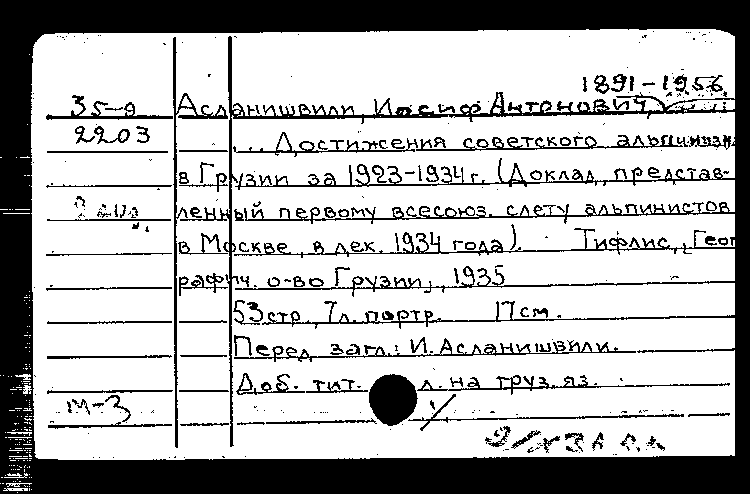 1891-1956
35-9 Асланишвили, Иосиф Антонович,
2203 ... Достижения советского альпинизм
в Грузии за 1923-1934 г. (Доклад, представ-
ленный первому всесоюз. слету альпинистов
в Москве, в дек. 1934 года). Тифлис, "Геог
рафич. о-во Грузии", 1935
53 стр., 7 л. портр. 17 см.
Перед загл.: И. Асланишвили.
Доб. тит. л. на груз. яз.
м-3